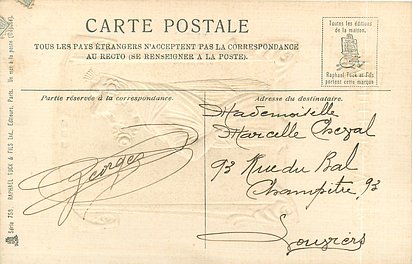 CARTE POSTALE
TOUS LES PAYS ÉTRANGERS N'ACCEPTENT PAS LA CORRESPONDANCE
AU RECTO (SE RENSEIGNER A LA POSTE).
Toutes les éditions
de la maison
Raphael Tuck et Fils
portent cette marque
Partie réservée à la correspondance.
Adresse du destinataire.
Georges
Mademoiselle
Marcelle Cheval
93 Rue du Bal
Champêtre, 93
Louviers
Série 755. RAPHAEL TUCK & FILS Ltd. Editeurs, Paris.